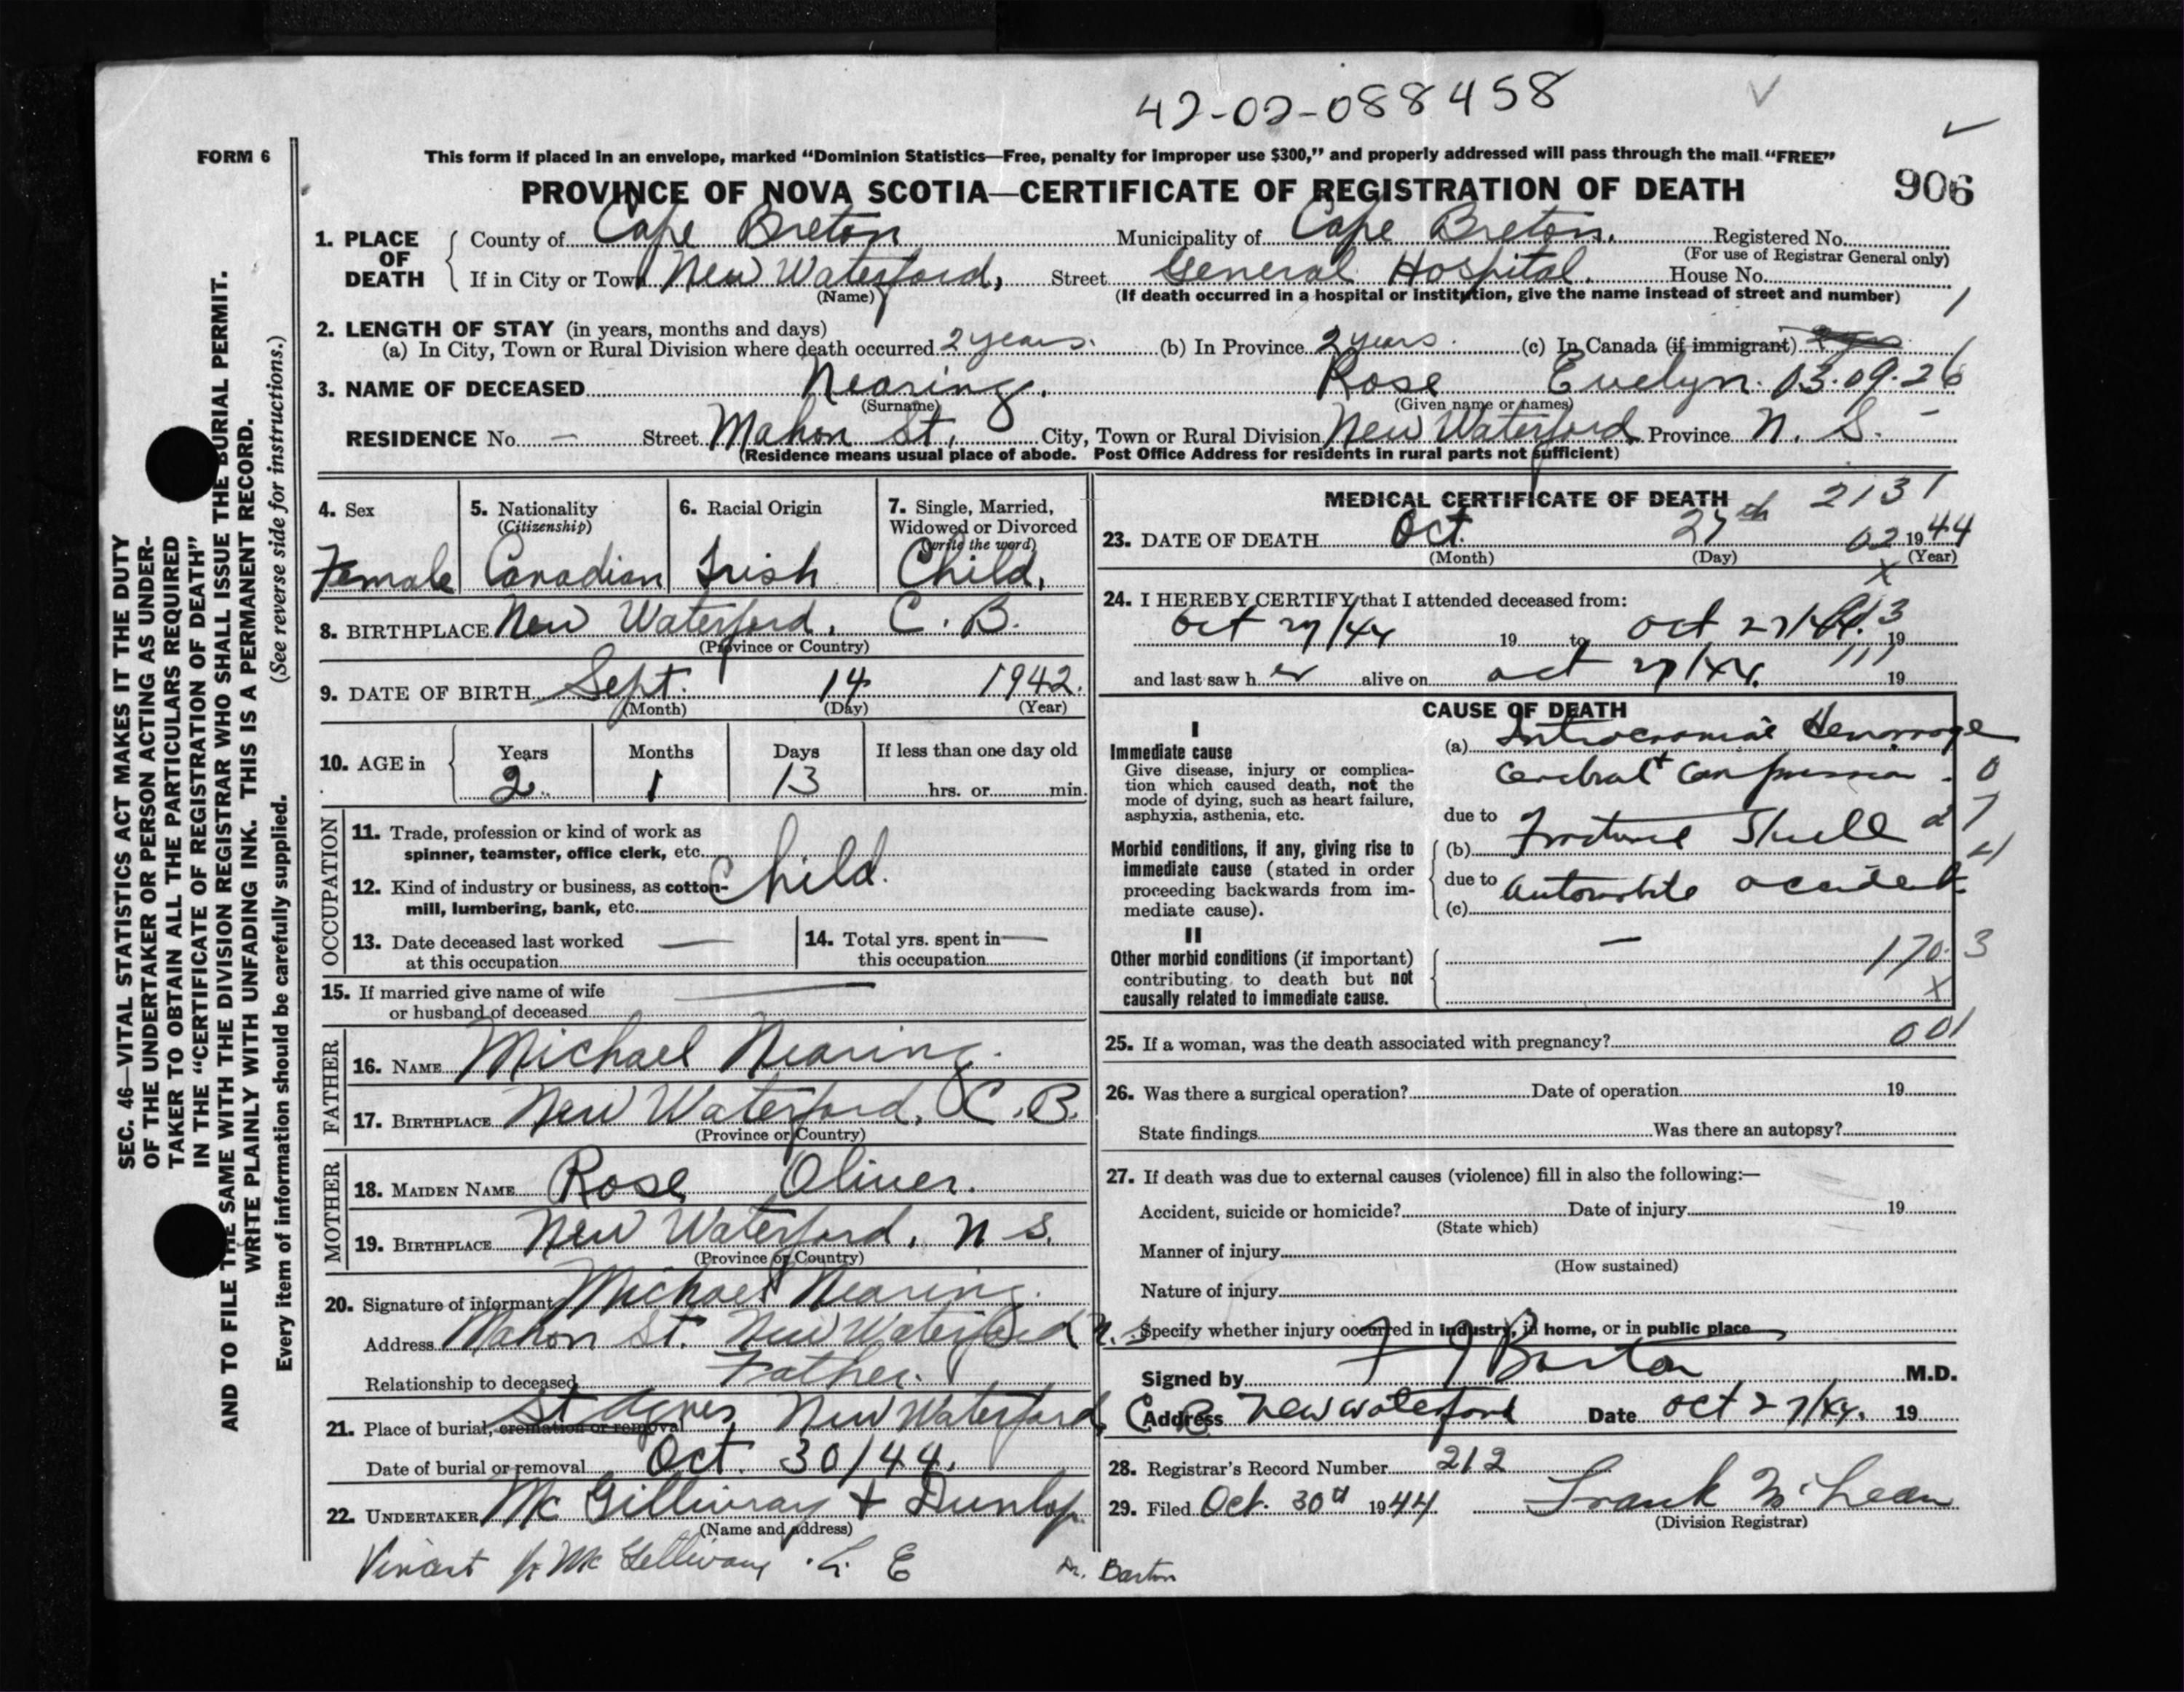 42-02-088458
FORM 6
This form if placed in an envelope, marked “Dominion Statistics—Free, penalty for improper use $300,” and properly addressed will pass through the mail “FREE”
PROVINCE OF NOVA SCOTIA—CERTIFICATE OF REGISTRATION OF DEATH
906
1. PLACE OF DEATH
County of Cape Breton Municipality of Cape Breton. Registered No.
(For use of Registrar General only)
If in City or Town New Waterford, Street General Hospital. House No.
(Name)
(If death occurred in a hospital or institution, give the name instead of street and number)
2. LENGTH OF STAY (in years, months and days)
(a) In City, Town or Rural Division where death occurred 2 years. (b) In Province 2 years. (c) In Canada (if immigrant)
3. NAME OF DECEASED Nearing. Rose Evelyn. 03.09.26
(Surname) (Given name or names)
RESIDENCE No. — Street Mahon St. City, Town or Rural Division New Waterford Province N. S. –
(Residence means usual place of abode. Post Office Address for residents in rural parts not sufficient)
4. Sex
Female
5. Nationality
(Citizenship)
Canadian
6. Racial Origin
Irish
7. Single, Married, Widowed or Divorced
(write the word)
Child.
8. BIRTHPLACE New Waterford, C. B.
(Province or Country)
9. DATE OF BIRTH Sept. 14 1942.
(Month) (Day) (Year)
10. AGE in
Years Months Days If less than one day old
2 1 13 hrs. or min.
OCCUPATION
11. Trade, profession or kind of work as
spinner, teamster, office clerk, etc.
Child.
12. Kind of industry or business, as cotton-
mill, lumbering, bank, etc.
13. Date deceased last worked —
at this occupation
14. Total yrs. spent in —
this occupation
15. If married give name of wife
or husband of deceased
FATHER
16. NAME Michael Nearing.
17. BIRTHPLACE New Waterford, C. B.
(Province or Country)
MOTHER
18. MAIDEN NAME Rose Oliver.
19. BIRTHPLACE New Waterford, N S.
(Province or Country)
20. Signature of informant Michael Nearing.
Address Mahon St. New Waterford N. S
Relationship to deceased Father.
21. Place of burial, cremation or removal St Agnes New Waterford, C B
Date of burial or removal Oct. 30/44.
22. UNDERTAKER McGillivray + Dunlop.
(Name and address)
Vincent McGillivary . L. E
MEDICAL CERTIFICATE OF DEATH 2131
23. DATE OF DEATH Oct. 27th 02 1944
(Month) (Day) (Year)
x
24. I HEREBY CERTIFY that I attended deceased from:
Oct 27/44 19 to Oct 27/44 19
and last saw her alive on Oct 27/44. 19
CAUSE OF DEATH
I
Immediate cause
Give disease, injury or complication which caused death, not the mode of dying, such as heart failure, asphyxia, asthenia, etc.
(a) Intracranial Hemorrage
+ Cerebral Compression.
due to
Morbid conditions, if any, giving rise to immediate cause (stated in order proceeding backwards from immediate cause).
(b) Fracture Skull
due to
(c) automobile accident.
II
Other morbid conditions (if important) contributing to death but not causally related to immediate cause.
—
170. 3
x
25. If a woman, was the death associated with pregnancy? 001
26. Was there a surgical operation? Date of operation 19
State findings Was there an autopsy?
27. If death was due to external causes (violence) fill in also the following:—
Accident, suicide or homicide? Date of injury 19
(State which)
Manner of injury
(How sustained)
Nature of injury
Specify whether injury occurred in industry, in home, or in public place
Signed by F J Barton M.D.
Address New Waterford Date Oct 27/44. 19
28. Registrar's Record Number 212
29. Filed Oct. 30th 1944 Frank McLean
(Division Registrar)
Dr. Barton
SEC. 46—VITAL STATISTICS ACT MAKES IT THE DUTY
OF THE UNDERTAKER OR PERSON ACTING AS UNDER-
TAKER TO OBTAIN ALL THE PARTICULARS REQUIRED
IN THE “CERTIFICATE OF REGISTRATION OF DEATH”
AND TO FILE THE SAME WITH THE DIVISION REGISTRAR WHO SHALL ISSUE THE BURIAL PERMIT.
WRITE PLAINLY WITH UNFADING INK. THIS IS A PERMANENT RECORD.
Every item of information should be carefully supplied. (See reverse side for instructions.)